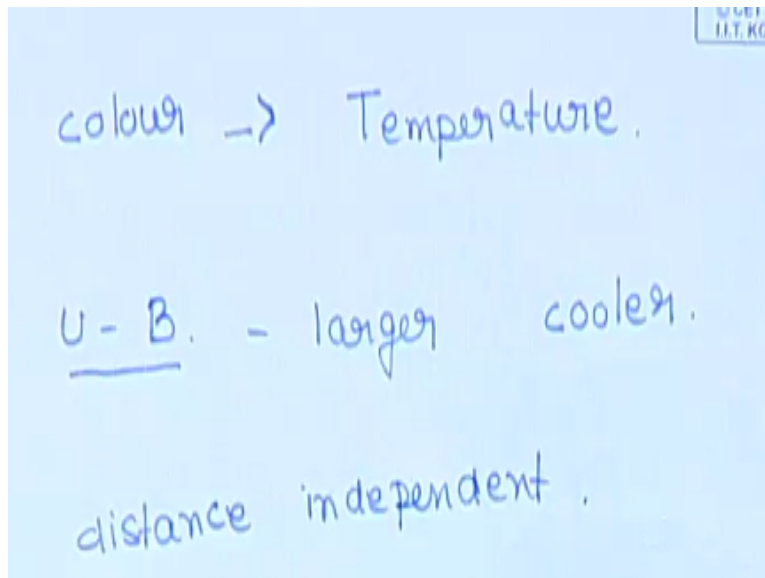 I.I.T. KG
colour -> Temperature.
U - B. - larger cooler.
distance independent.